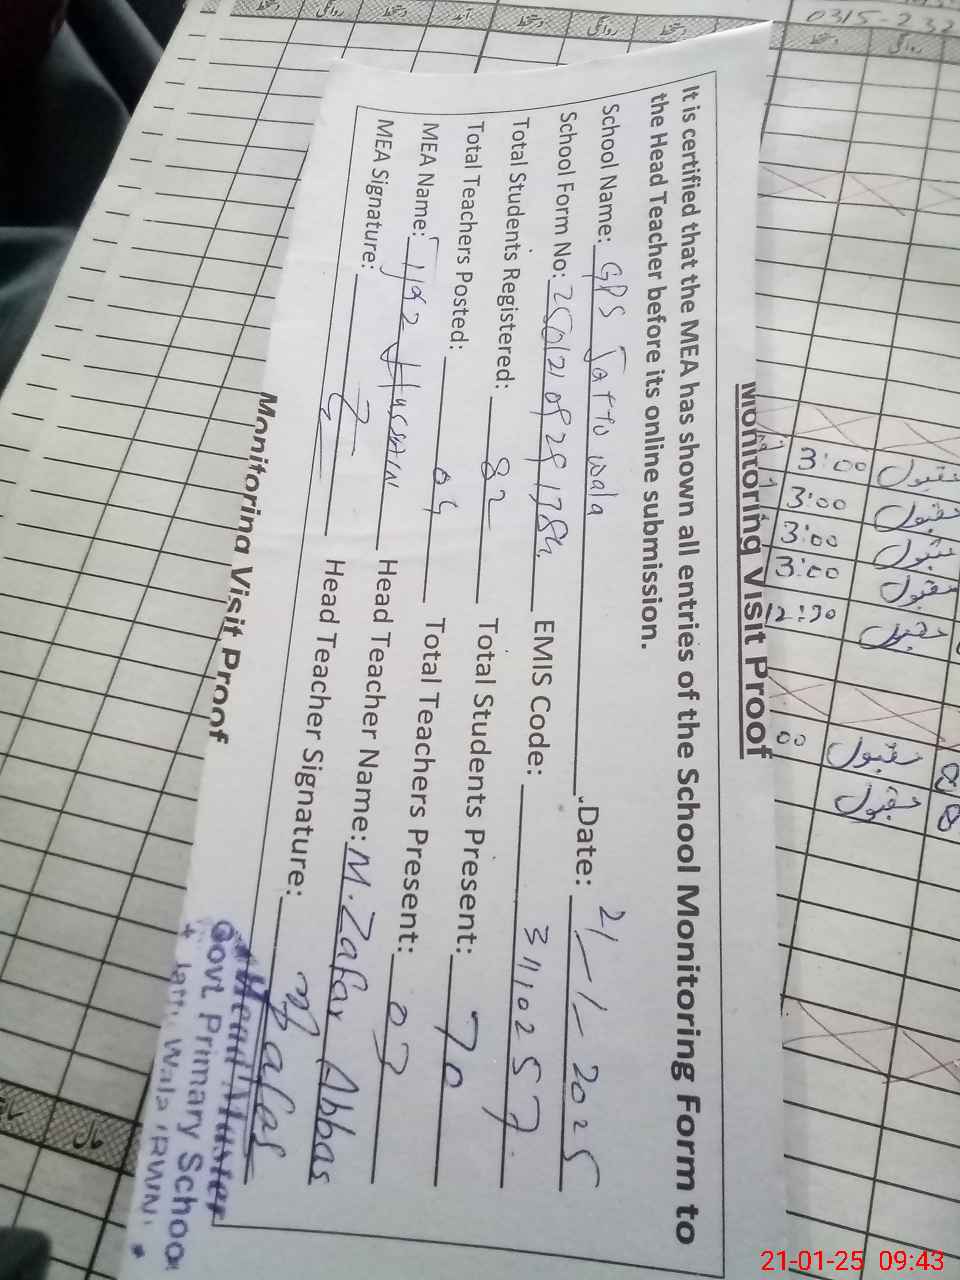 Monitoring Visit Proof
It is certified that the MEA has shown all entries of the School Monitoring Form to
the Head Teacher before its online submission.
School Name: GPS Jatto wala Date: 21-1-2025
School Form No: EMIS Code: 3110257
Total Students Registered: 82 Total Students Present: 70
Total Teachers Posted: 04 Total Teachers Present: 03
MEA Name: Ijaz Hussain Head Teacher Name: M. Zafar Abbas
MEA Signature: Head Teacher Signature: Zafar
Head Master
Govt. Primary School
Jattu Wala (RWN)
Monitoring Visit Proof
0315-232
3:00 مقبول
3:00 مقبول
3:00 مقبول
3:00 مقبول
12:30 مقبول
00 مقبول
مقبول
21-01-25 09:43